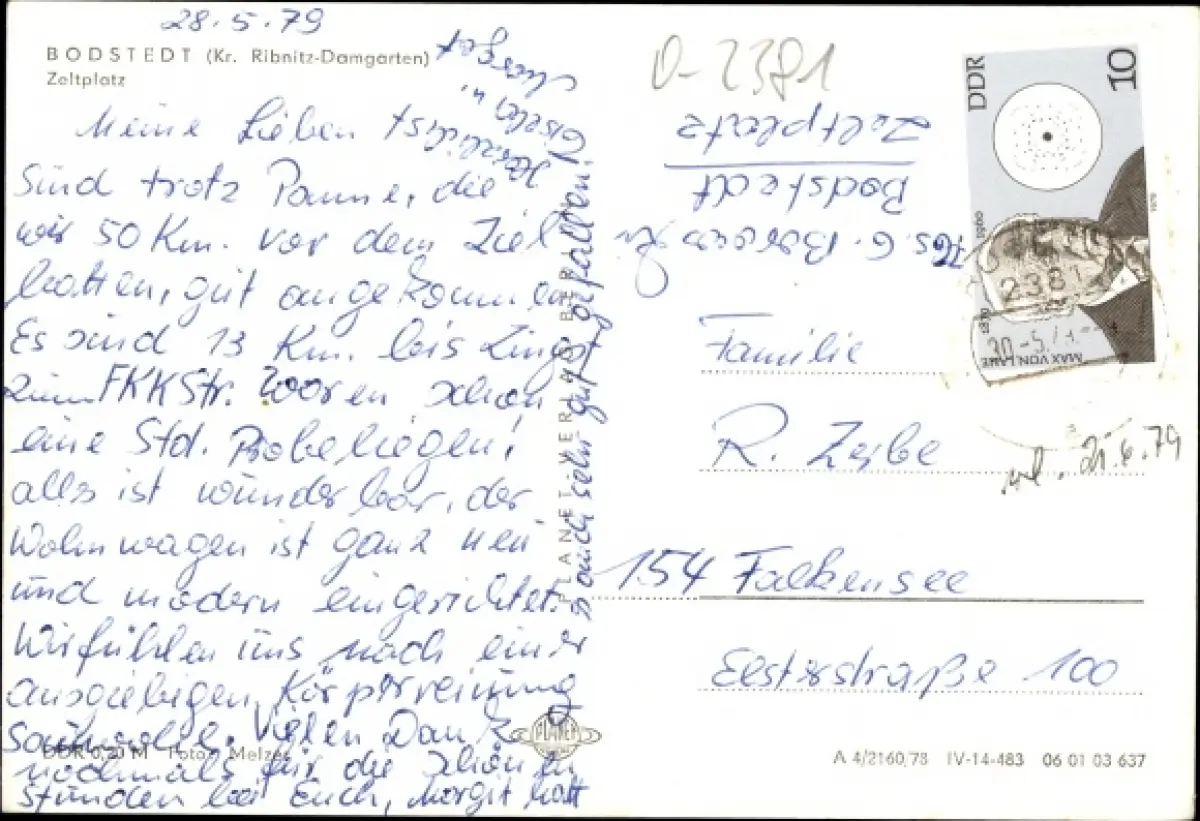 28.5.79
BODSTEDT (Kr. Ribnitz-Damgarten)
Zeltplatz
Meine Lieben
Sind trotz Panne, die
wir 50 Km. vor dem Ziel
hatten, gut angekommen
Es sind 13 Km. bis Zingst
zum FKKStr. Waren schon
eine Std. Probeliegen!
alles ist wunderbar, der
Wohnwagen ist ganz neu
und modern eingerichtet.
Wir fühlen uns nach einer
ausgiebigen Körperreinung
sauwohl. Vielen Dank
nochmals für die schönen
Stunden bei Euch, Margit hatt
es auch sehr gut gefallen!
Herzlichst
Gisela u.
Margot
DDR 0,20 M Foto: Melzer
PLANET-VERLAG BERLIN
PLANET
O-2381
Abs. G.
Bodstedt
Zeltplatz
DDR
10
1879
1960
1979
MAX VON LAUE
2381
30-5.79
Familie
R. Zerbe
21.6.79
154 Falkensee
Elsterstraße 100
A 4/2160/78 IV-14-483 06 01 03 637